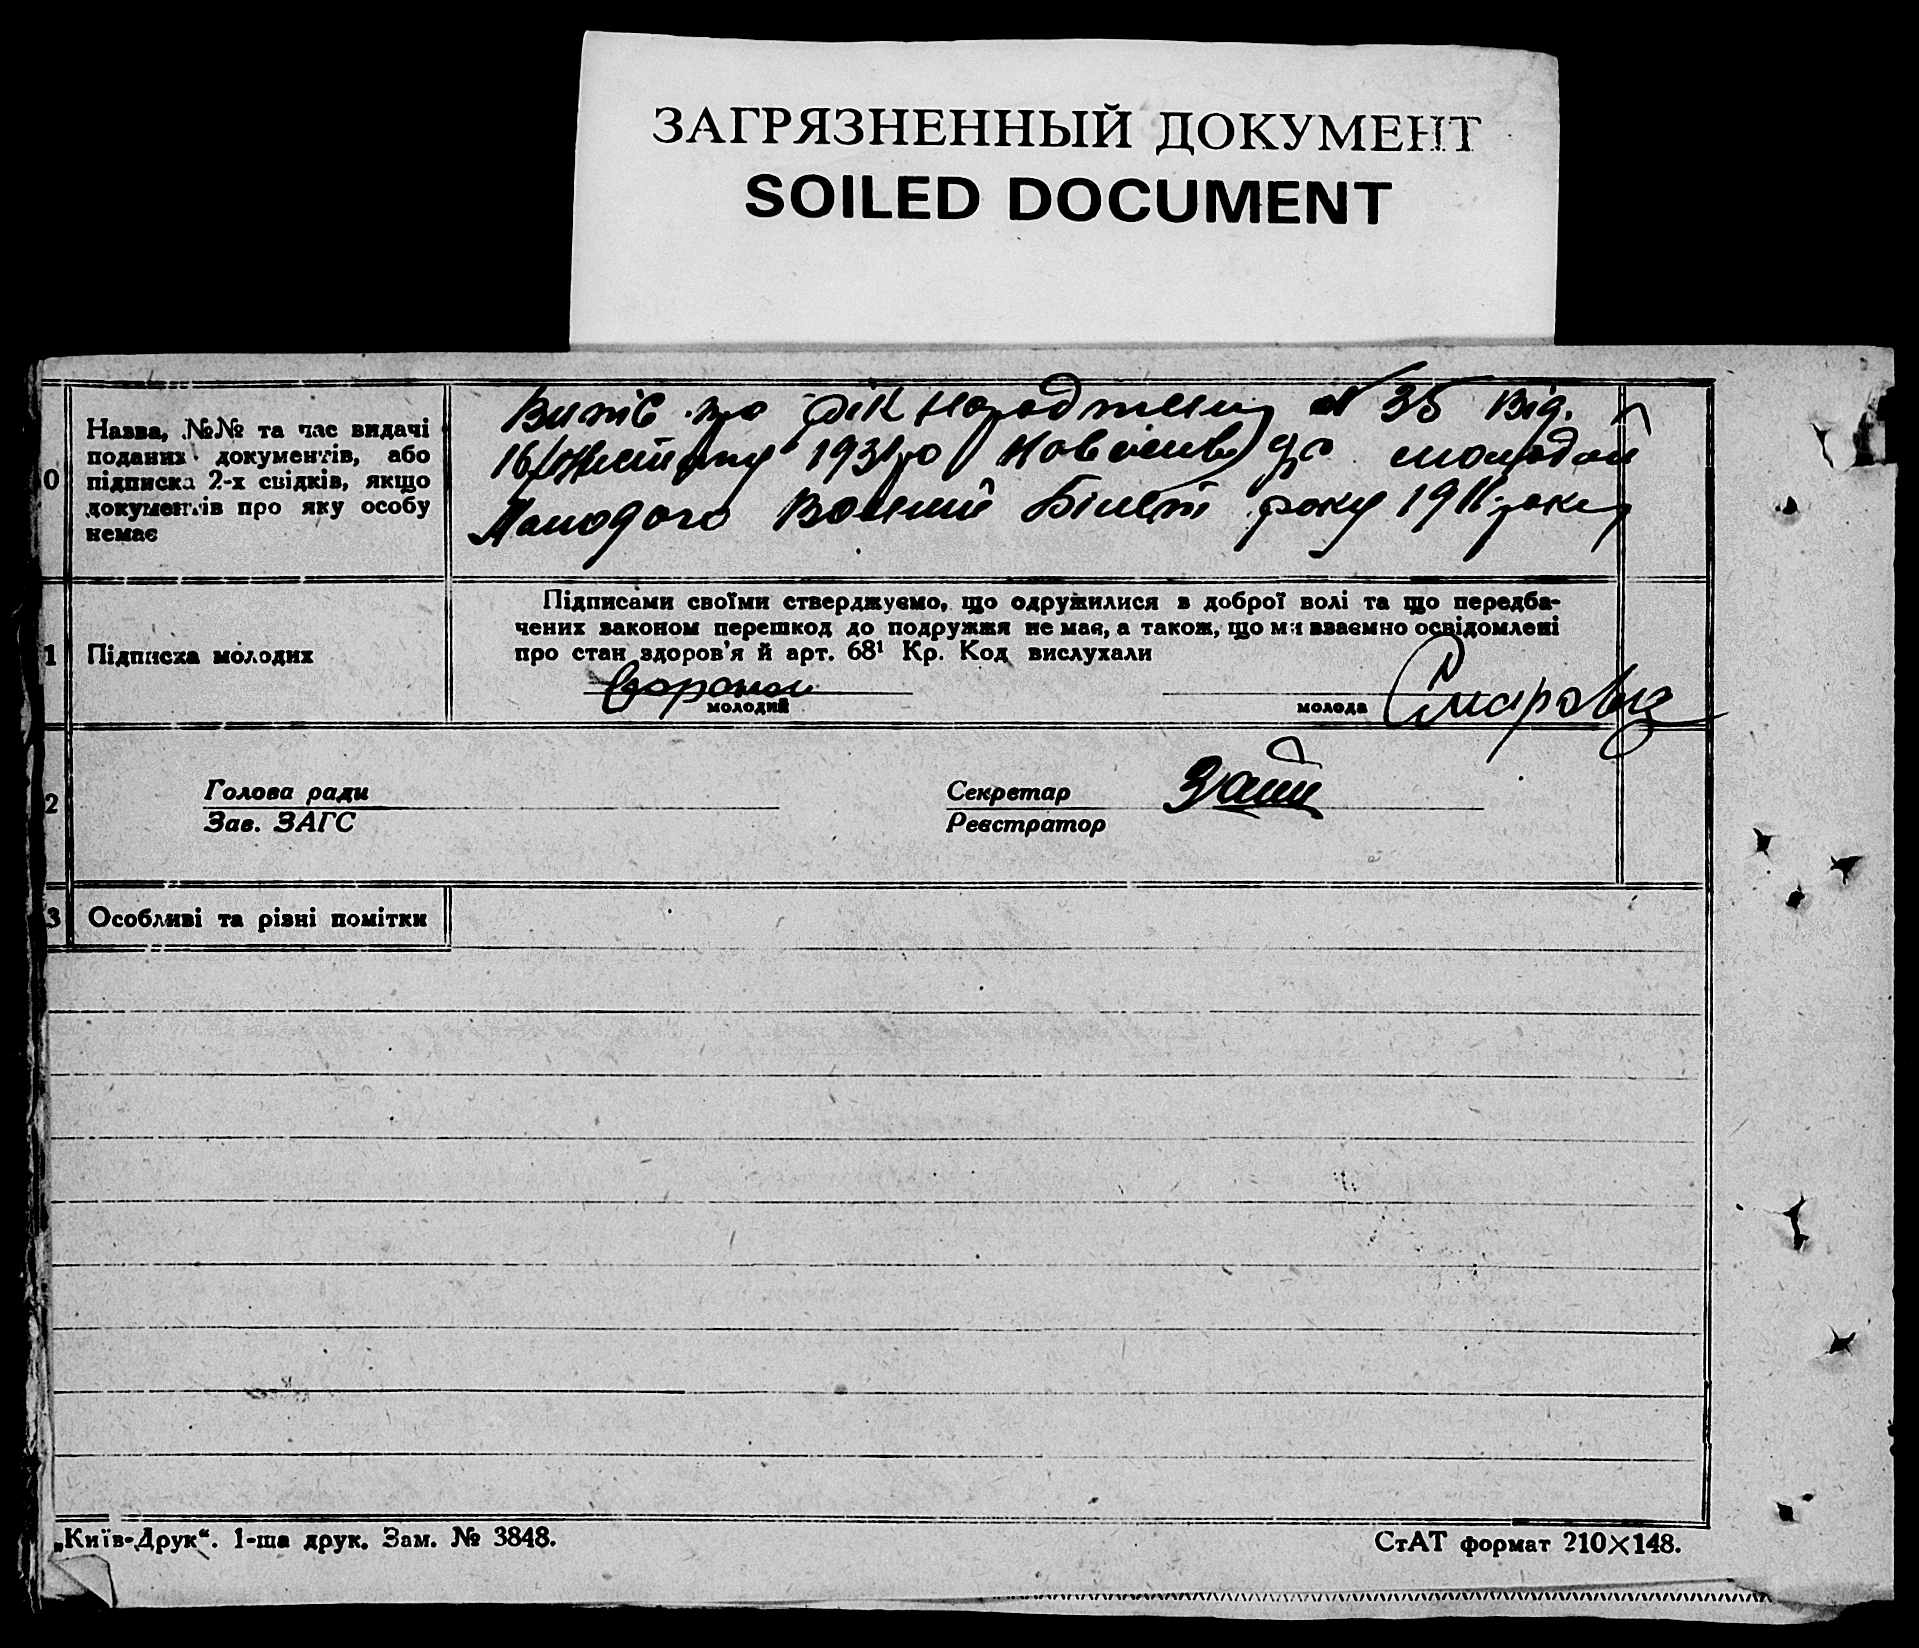 ЗАГРЯЗНЕННЫЙ ДОКУМЕНТ
SOILED DOCUMENT
0
Назва, №№ та час видачі
поданих документів, або
підписка 2-х свідків, якщо
документів про яку особу
немає
Витяг про рік народження № 35 від.
16/ 1931 р
молодого Воєний Білет року 1911 року
1
Підписка молодих
Підписами своїми стверджуємо, що одружилися в доброї волі та що передба-
чених законом перешкод до подружжя не має, а також, що ми взаємно освідомлені
про стан здоров'я й арт. 68¹ Кр. Код вислухали
молодий
молода
2
Голова ради
Зав. ЗАГС
Секретар
Реєстратор
3
Особливі та різні помітки
„Київ-Друк“. 1-ша друк. Зам. № 3848.
СтАТ формат 210×148.